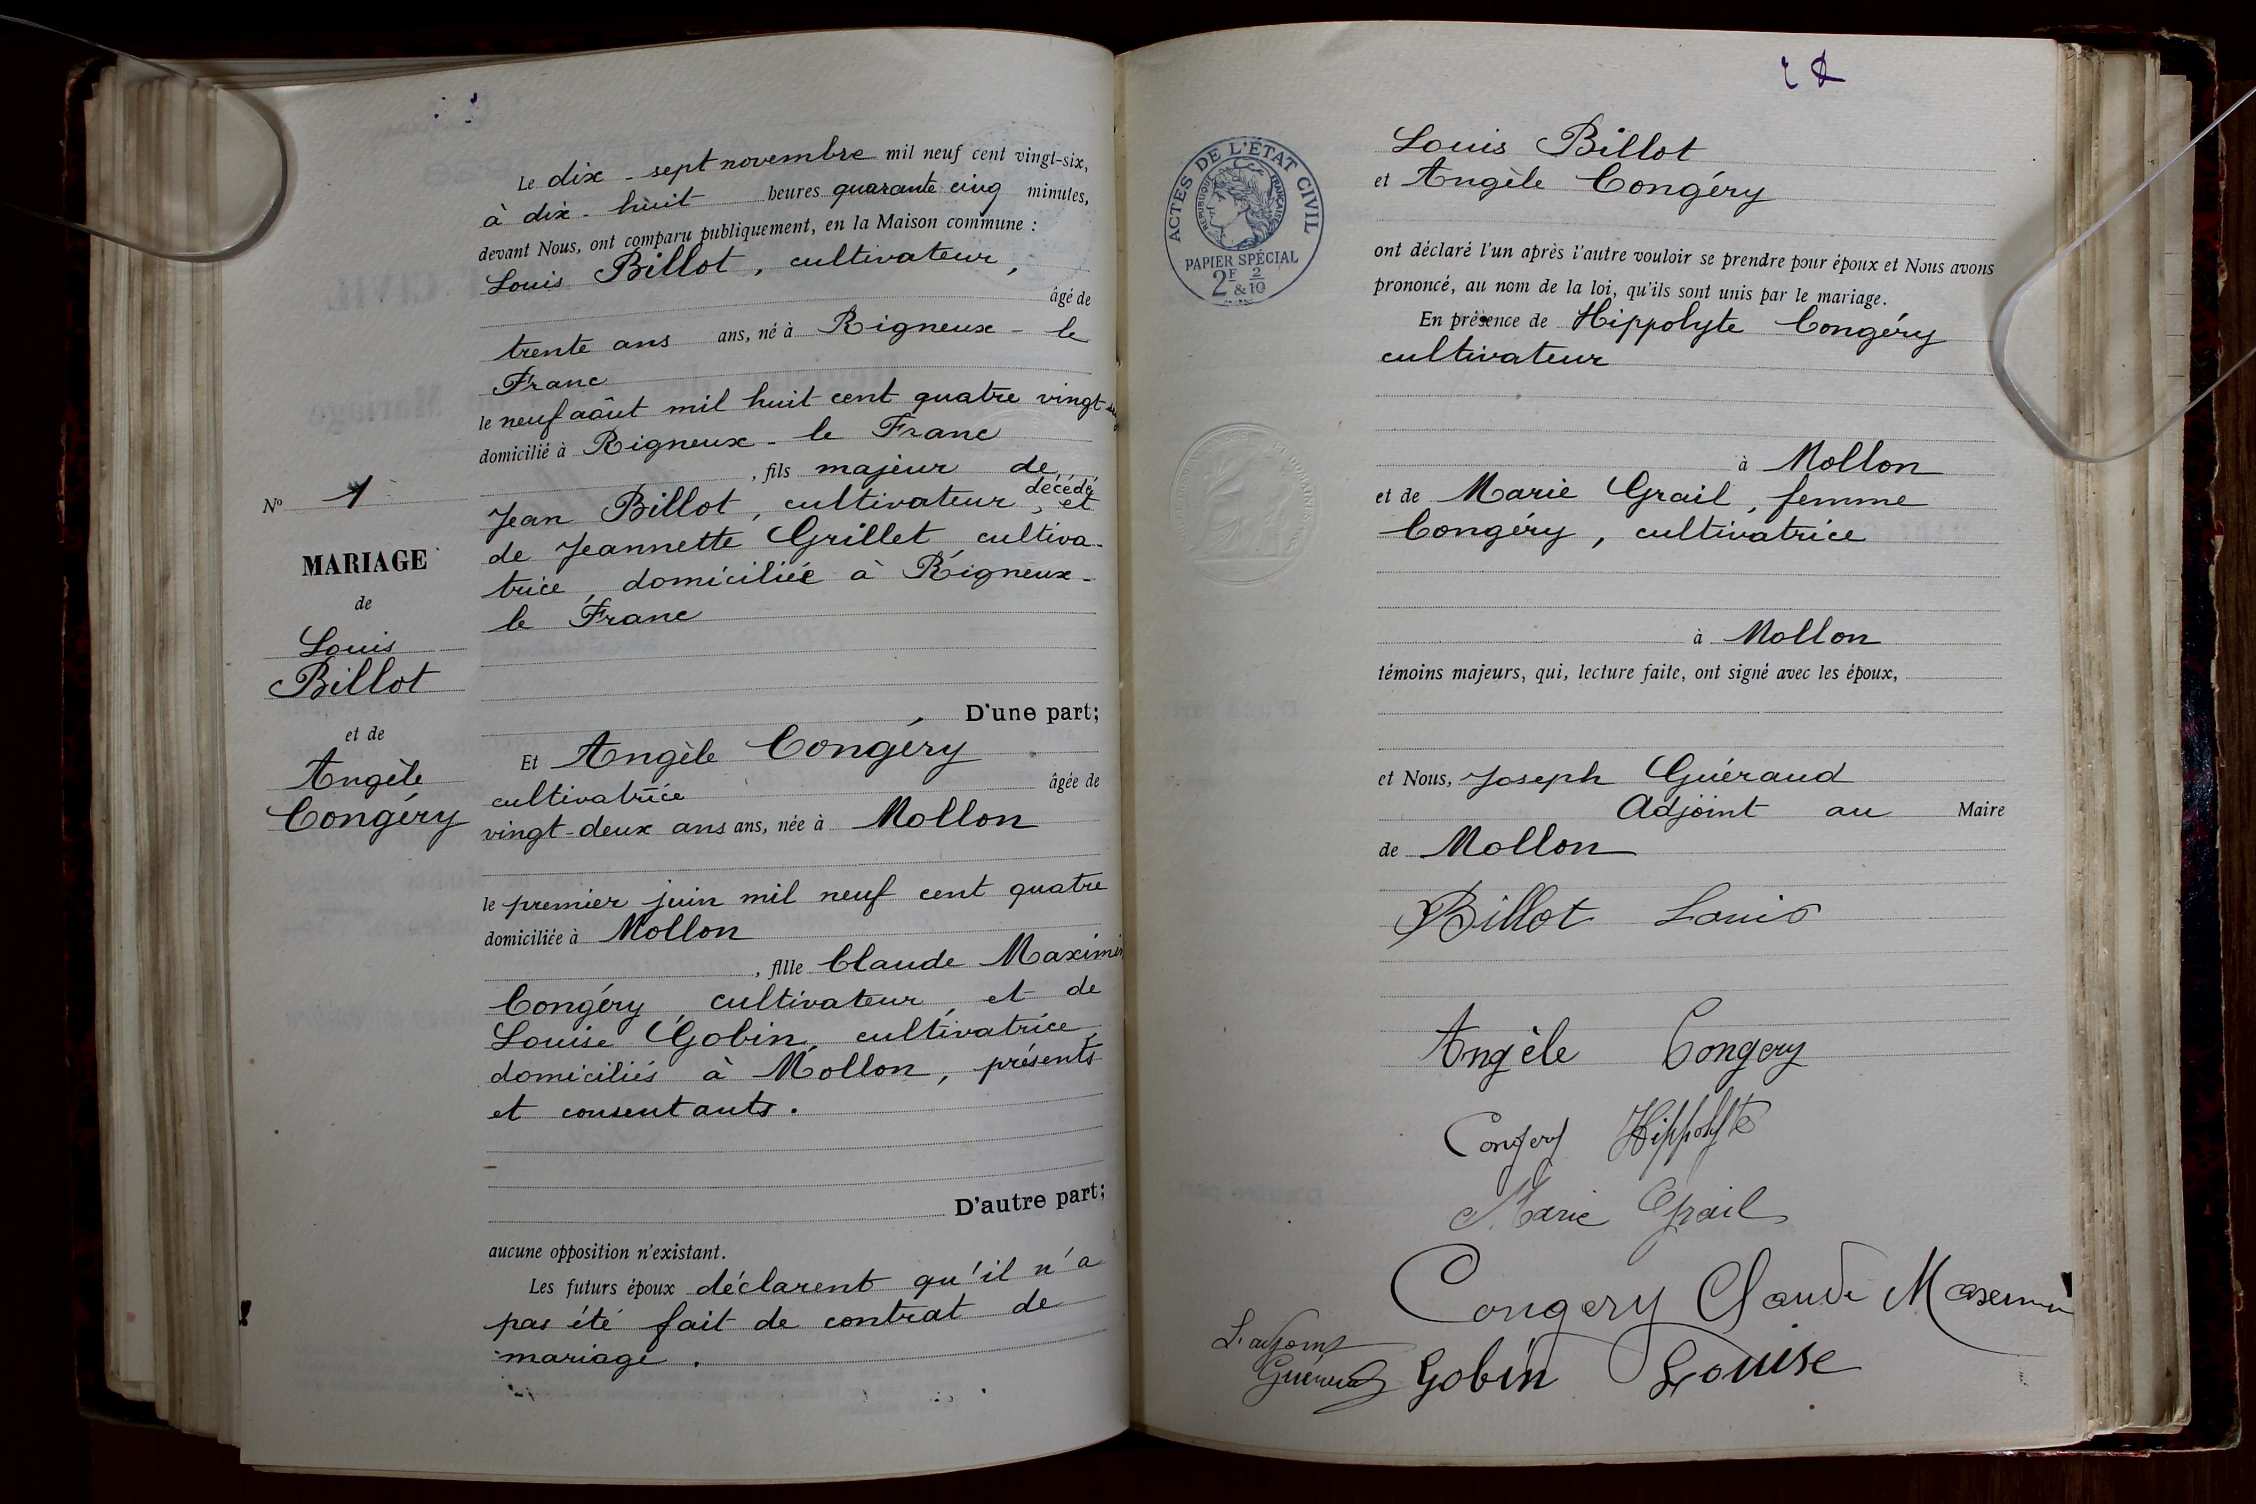 Le dix-sept novembre mil neuf cent vingt-six,
à dix-huit heures quarante cinq minutes,
devant Nous, ont comparu publiquement, en la Maison commune :
Louis Billot, cultivateur,
âgé de
trente ans ans, né à Rigneux-le
Franc
le neuf août mil huit cent quatre vingt
domicilié à Rigneux-le Franc
, fils majeur de
décédé
Jean Billot, cultivateur, et
de Jeannette Grillet cultiva-
trice, domiciliée à Rigneux-
le Franc
D'une part;
Et Angèle Congéry
cultivatrice âgée de
vingt-deux ans ans, née à Mollon
le premier juin mil neuf cent quatre
domiciliée à Mollon
, fille Claude Maximin
Congéry, cultivateur, et de
Louise Gobin, cultivatrice,
domiciliés à Mollon, présents
et consentants.
D'autre part;
aucune opposition n'existant.
Les futurs époux déclarent qu'il n'a
pas été fait de contrat de
mariage.
N° 1
MARIAGE
de
Louis
Billot
et de
Angèle
Congéry
ACTES DE L'ÉTAT CIVIL
RÉPUBLIQUE FRANÇAISE
PAPIER SPÉCIAL
2F & 2/10
Louis Billot
et Angèle Congéry
ont déclaré l'un après l'autre vouloir se prendre pour époux et Nous avons
prononcé, au nom de la loi, qu'ils sont unis par le mariage.
En présence de Hippolyte Congéry
cultivateur
à Mollon
et de Marie Grail, femme
Congéry, cultivatrice
à Mollon
témoins majeurs, qui, lecture faite, ont signé avec les époux,
et Nous, Joseph Guéraud
Adjoint au Maire
de Mollon
Billot Louis
Angèle Congery
Congery Hippolyte
Marie Grail
Congery Claude Maximin
L'adjoint
Guéraud
Gobin Louise